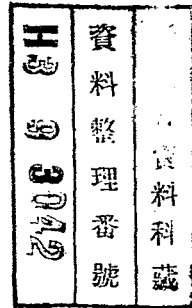 資料科藏
資料整理番號
H3 3042